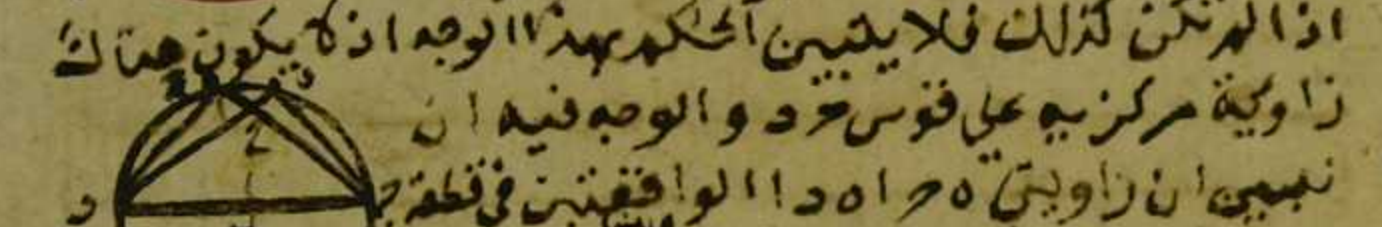 اذا لم تكن كذلك فلا يتبين الحكم بهذا الوجه اذ لا يكون هناك
زاوية مركزيه على قوس حر د والوجه فيه ان
نبين ان زاويتى ه ح ا ه د ا الواقعتين فى قطعة
د